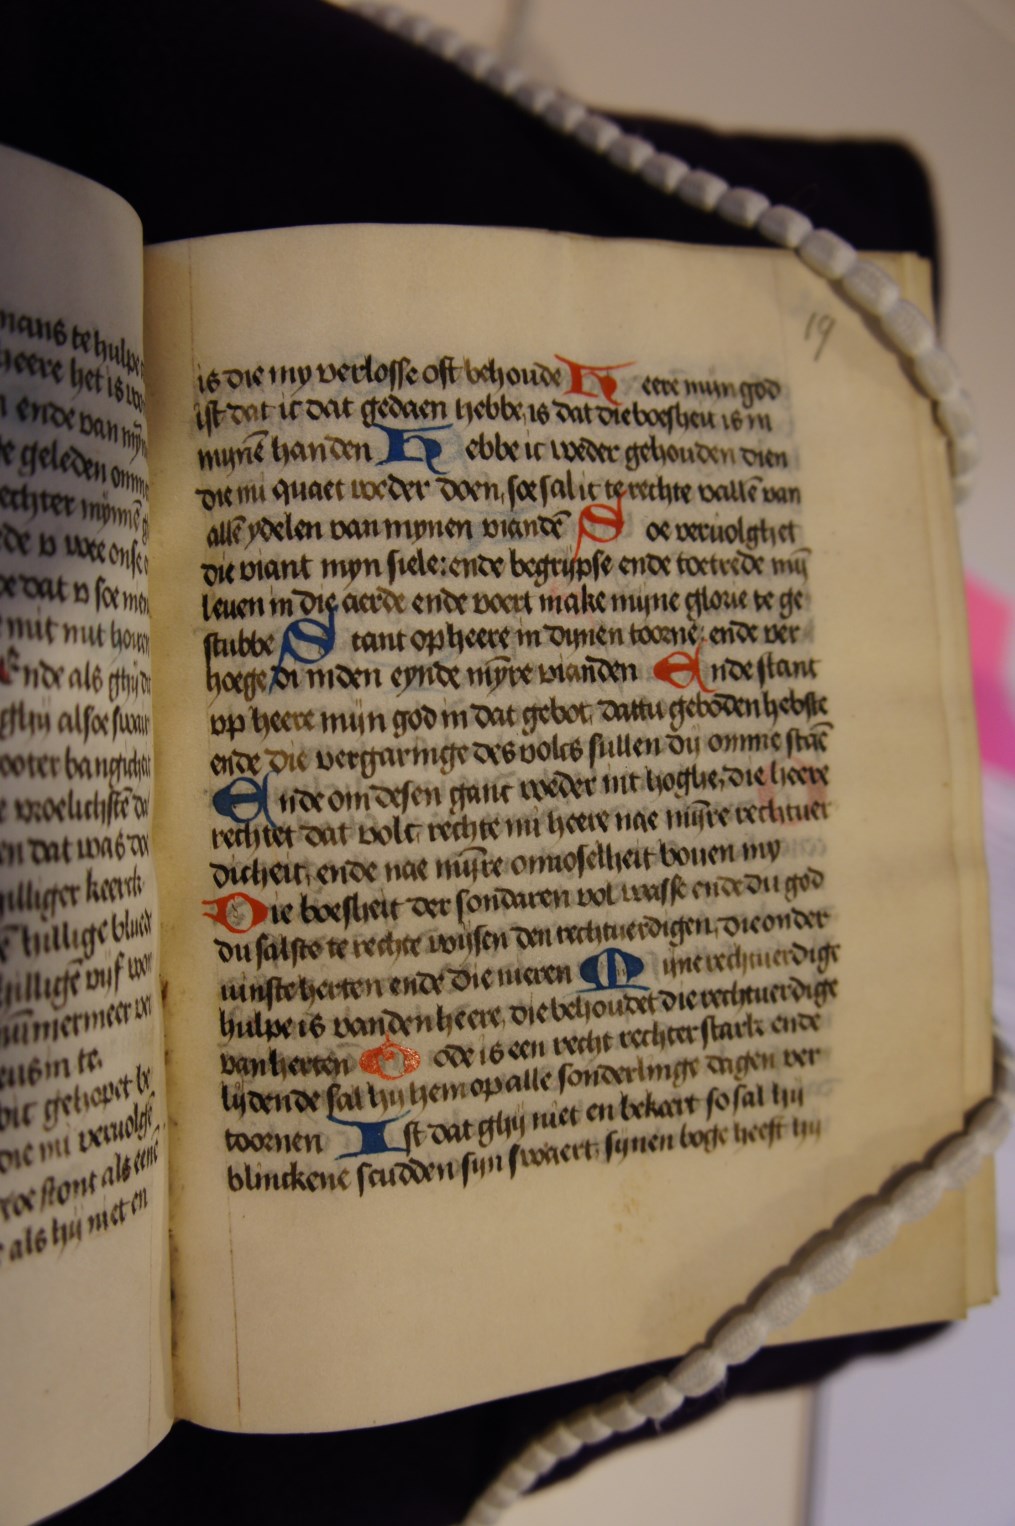 mans te hulpe
heere het is
ende van
geleden omme
rechter
v wee onse
dat v soe men
mit nut
nde als ghi
ghi alsoe
ooter banghcheit
vroelichste
en dat was
hilliger kerck
hillige bloed
hilligē vijf
nūmermeer
eus in te.
gehopet
die mi veruolgē
stont als eene
als hij niet en
19
is die my verlosse oft behoude Heere mijn god
ist dat ic dat gedaen hebbe, is dat die boesheit is in
mijnē handen Hebbe ic weder gehouden dien
die mi quaet weder doen, soe sal ic te rechte vallē van
allē ydelen van mynen viandē Soe veruolghet
die viant myn siele: ende begrijpse ende toetrede mij̄
leuen in die aerde ende voert make mijne glorie te ge
stubbe Stant op heere in dijnen toorne: ende ver
hoege di inden eynde mȳre vianden Ende stant
vp heere mijn god in dat gebot, dattu geboden hebste
ende die vergaringe des volcs sullen dij omme staē
Ende om desen ganc weder int hoghe, die heere
rechtet dat volc, rechte mi heere nae mij̄re rechtuer
dicheit, ende nae mij̄re onnoselheit bouen my
Die boesheit der sondaren vol wasse ende du god
du salste te rechte wijsen den rechtuerdigen, die onder
uinste herten ende die nieren Mijne rechtuerdige
hulpe is vanden heere, die behoudet die rechtuerdige
van herten Gode is een recht rechter stark ende
lijdende sal hij hem op alle sonderlinge dagen ver
toornen Ist dat ghij niet en bekeert so sal hij
blinckene scudden sijn swaert, synen boge heeft hij